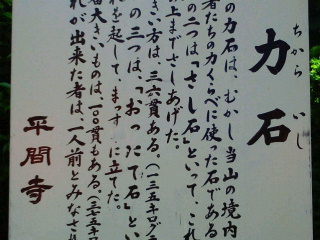 力石
ちから いし
の力石は、むかし当山の境内
者たちの力くらべに使った石である
の二つは「さし石」といって、これ
の上までさしあげた。
きい方は、三六貫ある。(一三五キログラ
の三つは、「おったて石」とい
れを起して、まっすぐに立てた。
番大きいものは、一〇〇貫もある。(三七五キロ
れが出来た者は、一人前とみなされ
平間寺